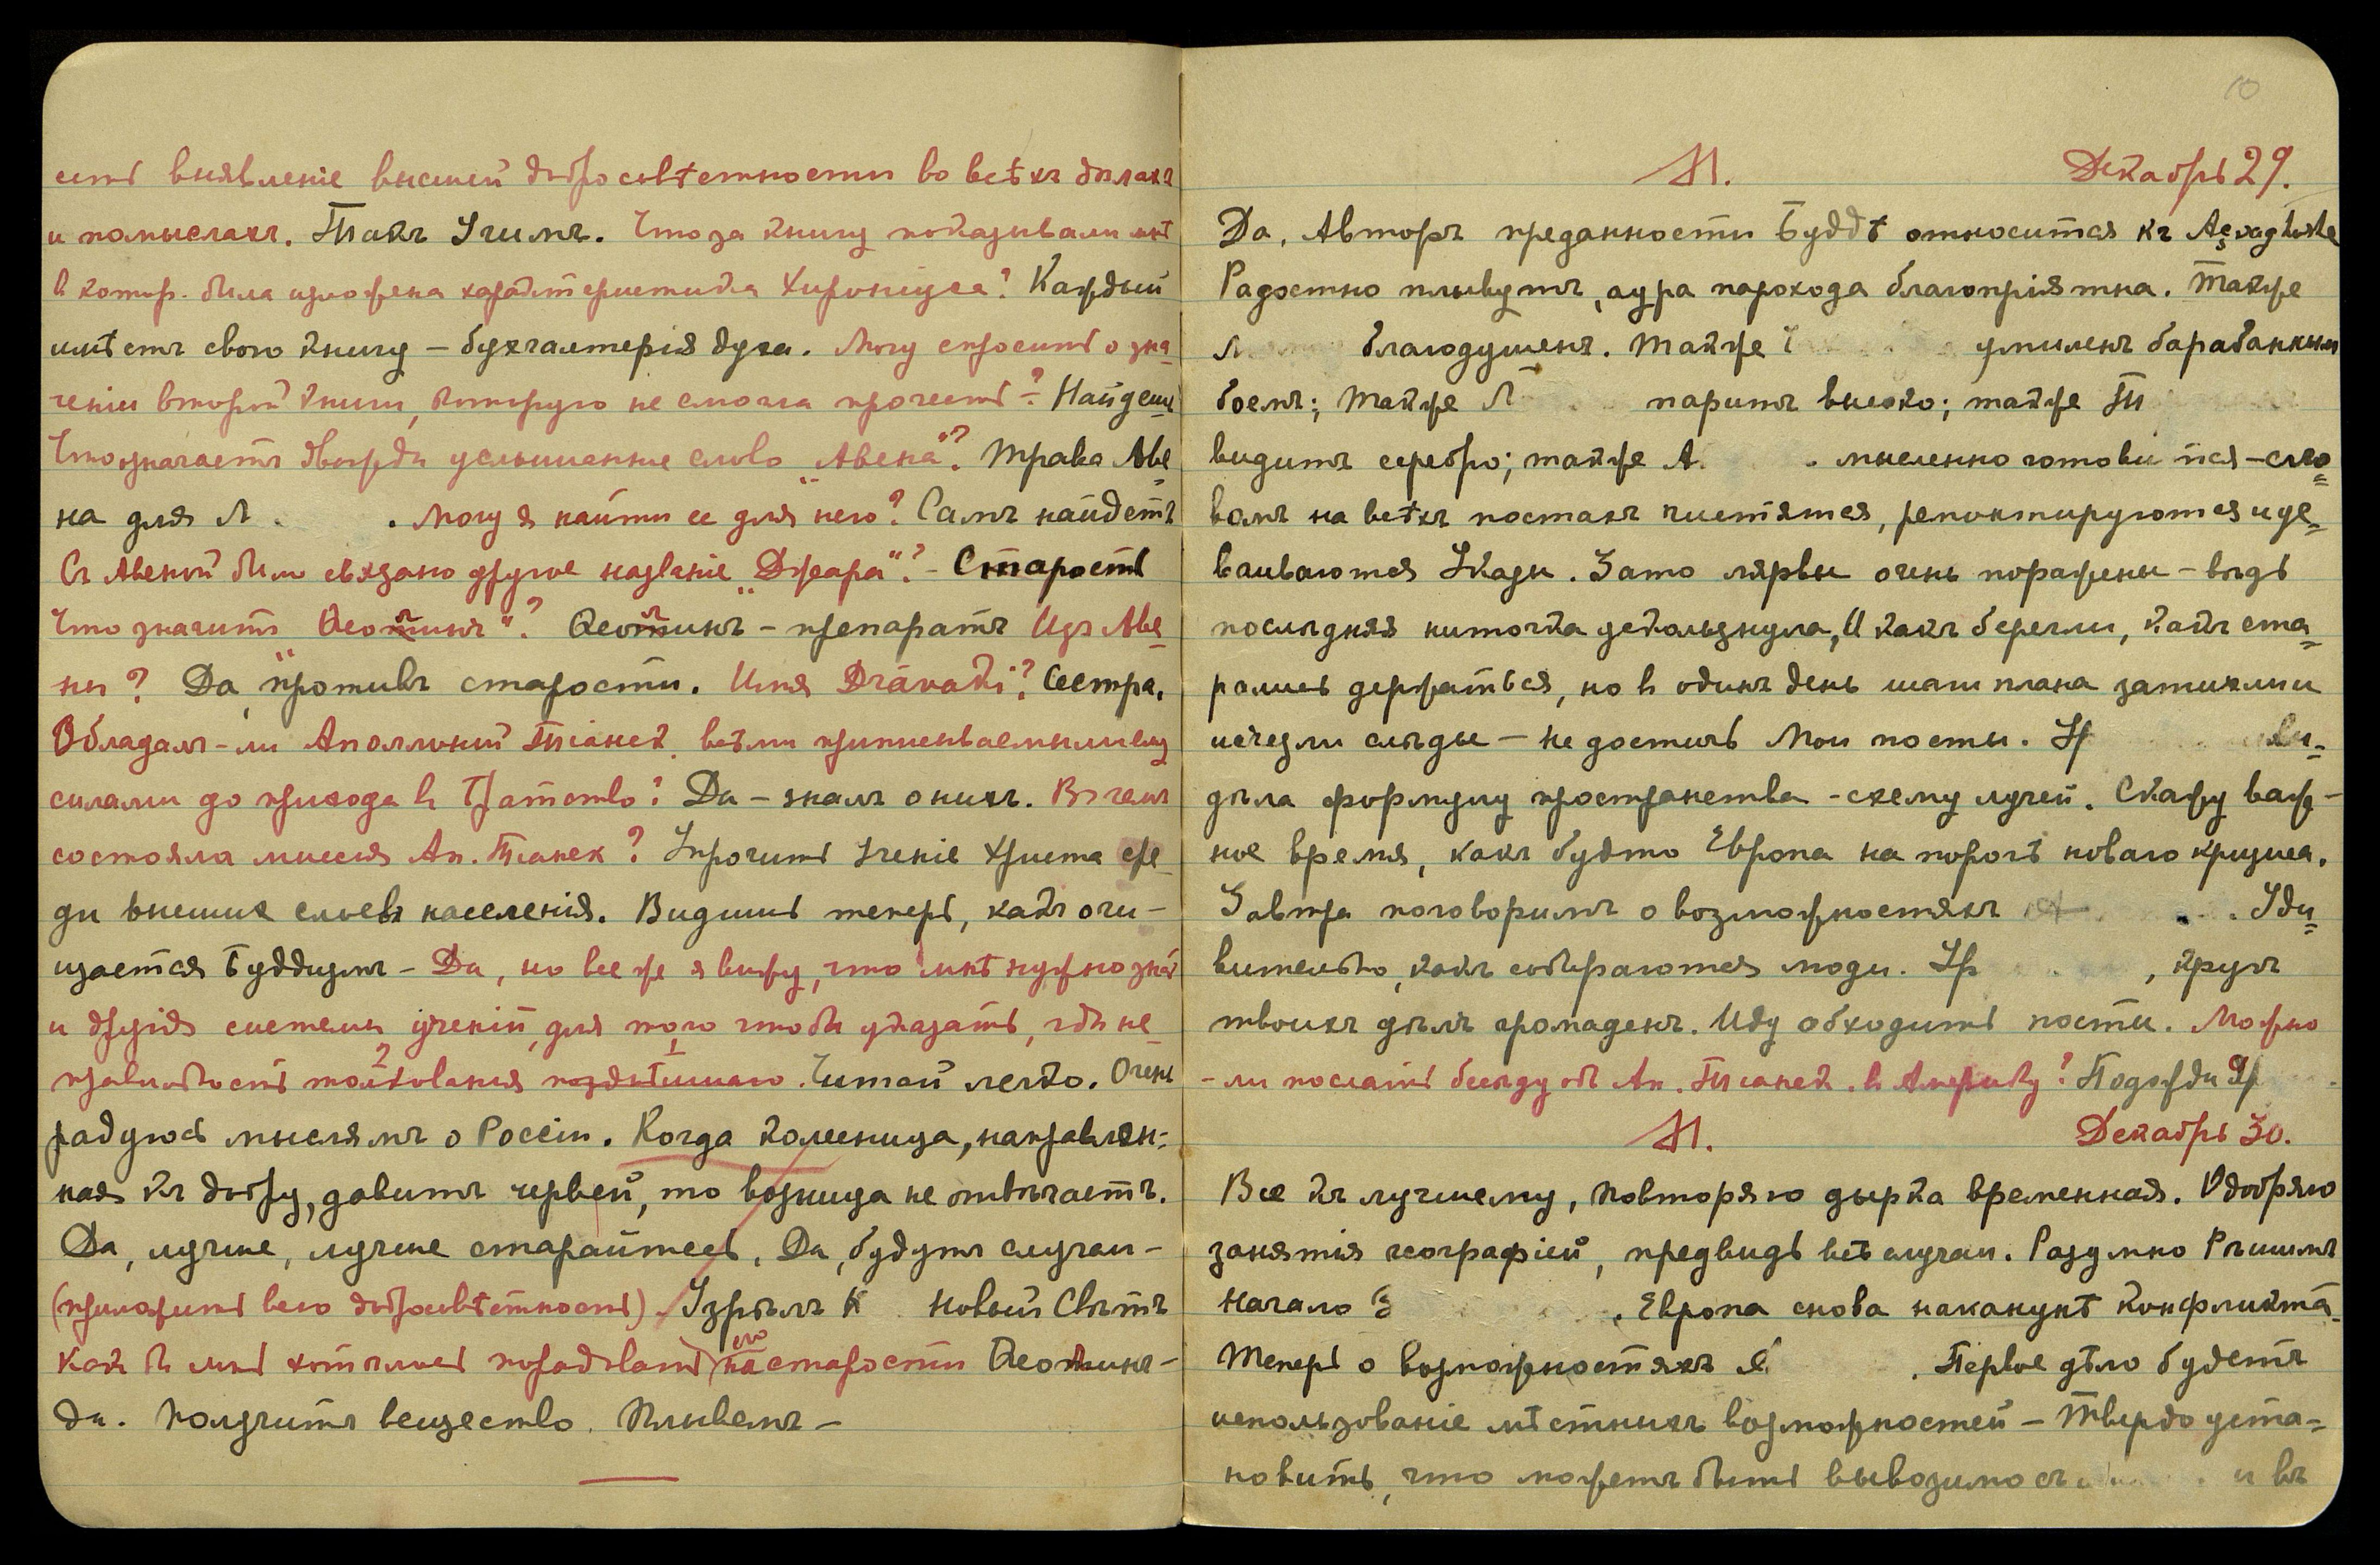 есть выявленіе высшей добросовѣстности во всѣхъ дѣлахъ
и помыслахъ. Такъ Учимъ. Что за книгу показывали мнѣ
в котор. была изложена характеристика Хирониуса? Каждый
имѣетъ свою книгу – бухгалтерія духа. Могу спросить о зна-
ченіи второй книги, которую не смогла прочесть? Найдешь
Что означаетъ дважды услышанное слово „Авена"? Трава Аве-
на для Л . . Могу я найти ее для него? Самъ найдетъ
Съ Авеной было связано другое названіе „Джара"? – Старость
Что значитъ „ ? – препаратъ Изъ Аве-
ны? Да, противъ старости. Имя Dravadi? Сестра.
Обладалъ-ли Аполлоній Тіанск. всѣми приписываемыми ему
силами до прихода в Братство? Да – зналъ о нихъ. Въ чемъ
состояла миссія Ап. Тіанск? Упрочить Ученіе Христа сре-
ди высших слоевъ населенія. Видишь теперь, какъ очи-
щается Буддизмъ – Да, но все же я вижу, что мнѣ нужно знать
и другія системы ученій, для того чтобы указать, гдѣ не-
правильность толкованія позднѣйшаго. Читай легко. Очень
радуюсь мыслямъ о Россіи. Когда колесница, направлен-
ная къ добру, давитъ червей, то возница не отвѣчаетъ.
Да, лучше, лучше старайтесь. Да, будутъ случаи –
(приложить всю добросовѣстность). Узрѣлъ К новый Свѣтъ
Как бы мнѣ хотѣлось порадовать его на старости –
да. Получитъ вещество. Плывемъ –
10
М. Декабрь 29.
Да, Авторъ преданности Буддѣ относится къ Açvaghosha
Радостно плывутъ, аура парохода благопріятна. Также
Л благодушенъ. Также умиленъ барабаннымъ
боемъ; также Л паритъ высоко; также Ти
видитъ серебро; также А. . мысленно готовится – сло-
вомъ на всѣхъ постахъ чистятся, ремонтируются и уе-
ваиваются Указы. Зато лярвы очень поражены – вѣдь
послѣдняя ниточка ускользнула, И какъ берегли, какъ ста-
рались держаться, но в одинъ день шаги плана затихли и
исчезли слѣды – не достичь Мои посты. Ур ви-
дѣла формулу пространства – схему лучей. Скажу важ-
ное время, какъ будто Европа на порогѣ новаго кризиса.
Завтра поговоримъ о возможностяхъ . Уди-
вительно, какъ собираются люди. Ур , кругъ
твоихъ дѣлъ громаденъ. Иду обходить посты. Можно
-ли послать бесѣду об Ап. Тіанск. в Америку? Подожди Ур .
М. Декабрь 30.
Все къ лучшему, повторяю дырка временная. Одобряю
занятія географіей, предвидь всѣ случаи. Разумно Рѣшимъ
начало . Европа снова наканунѣ конфликта.
Теперь о возможностяхъ . Первое дѣло будетъ
использованіе мѣстныхъ возможностей – твердо уста-
новить, что можетъ быть вывозимо съ . и въ